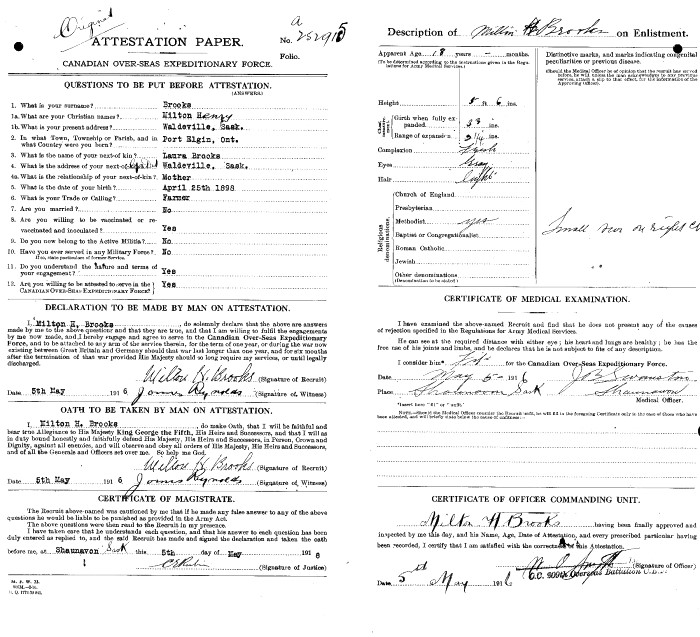 Original
ATTESTATION PAPER.
No. a 252915
Folio.
CANADIAN OVER-SEAS EXPEDITIONARY FORCE.
QUESTIONS TO BE PUT BEFORE ATTESTATION.
(ANSWERS)
1. What is your surname? Brooks
1a. What are your Christian names? Milton Henry
1b. What is your present address? Waldeville, Sask.
2. In what Town, Township or Parish, and in what Country were you born? Port Elgin, Ont.
3. What is the name of your next-of-kin? Laura Brooks
4. What is the address of your next-of-kin? Waldeville, Sask.
4a. What is the relationship of your next-of-kin? Mother
5. What is the date of your birth? April 25th 1898
6. What is your Trade or Calling? Farmer
7. Are you married? No
8. Are you willing to be vaccinated or re-vaccinated and inoculated? Yes
9. Do you now belong to the Active Militia? No
10. Have you ever served in any Military Force? No
If so, state particulars of former Service.
11. Do you understand the nature and terms of your engagement? Yes
12. Are you willing to be attested to serve in the CANADIAN OVER-SEAS EXPEDITIONARY FORCE? Yes
DECLARATION TO BE MADE BY MAN ON ATTESTATION.
I, Milton H. Brooks, do solemnly declare that the above are answers
made by me to the above questions and that they are true, and that I am willing to fulfil the engagements
by me now made, and I hereby engage and agree to serve in the Canadian Over-Seas Expeditionary
Force, and to be attached to any arm of the service therein, for the term of one year, or during the war now
existing between Great Britain and Germany should that war last longer than one year, and for six months
after the termination of that war provided His Majesty should so long require my services, or until legally
discharged.
Milton H. Brooks (Signature of Recruit)
Date 5th May 1916 James Reynolds (Signature of Witness)
OATH TO BE TAKEN BY MAN ON ATTESTATION.
I, Milton H. Brooks, do make Oath, that I will be faithful and
bear true Allegiance to His Majesty King George the Fifth, His Heirs and Successors, and that I will as
in duty bound honestly and faithfully defend His Majesty, His Heirs and Successors, in Person, Crown and
Dignity, against all enemies, and will observe and obey all orders of His Majesty, His Heirs and Successors,
and of all the Generals and Officers set over me. So help me God.
Milton H. Brooks (Signature of Recruit)
Date 5th May 1916 James Reynolds (Signature of Witness)
CERTIFICATE OF MAGISTRATE.
The Recruit above-named was cautioned by me that if he made any false answer to any of the above
questions he would be liable to be punished as provided in the Army Act.
The above questions were then read to the Recruit in my presence.
I have taken care that he understands each question, and that his answer to each question has been
duly entered as replied to, and the said Recruit has made and signed the declaration and taken the oath
before me, at Shaunavon Sask this 5th day of May 191 6
(Signature of Justice)
M. F. W. 23.
Description of Milton H Brooks on Enlistment.
Apparent Age 18 years - months.
(To be determined according to the instructions given in the Regulations for Army Medical Services.)
Distinctive marks, and marks indicating congenital
peculiarities or previous disease.
(Should the Medical Officer be of opinion that the recruit has served before, he will, unless the man acknowledges to any previous service, attach a slip to that effect, for the information of the Approving Officer).
Height 5 ft. 6 ins.
Chest measurement
Girth when fully expanded 33 ins.
Range of expansion 3 1/4 ins.
Complexion
Eyes Gray
Hair Light
Religious denominations.
Church of England
Presbyterian
Methodist yes
Baptist or Congregationalist
Roman Catholic
Jewish
Other denominations
(Denomination to be stated)
Small scar on right
CERTIFICATE OF MEDICAL EXAMINATION.
I have examined the above-named Recruit and find that he does not present any of the causes
of rejection specified in the Regulations for Army Medical Services.
He can see at the required distance with either eye; his heart and lungs are healthy; he has the
free use of his joints and limbs, and he declares that he is not subject to fits of any description.
I consider him* fit for the Canadian Over-Seas Expeditionary Force.
Date May 5 1916
Place Shaunavon Sask Shaunavon
Medical Officer.
*Insert here "fit" or "unfit"
NOTE.—Should the Medical Officer consider the Recruit unfit, he will fill in the foregoing Certificate only in the case of those who have been attested, and will briefly state below the cause of unfitness:—
CERTIFICATE OF OFFICER COMMANDING UNIT.
Milton H Brooks having been finally approved and
inspected by me this day, and his Name, Age, Date of Attestation, and every prescribed particular having
been recorded, I certify that I am satisfied with the correctness of this Attestation.
(Signature of Officer)
O.C. 209th Overseas Battalion
Date 5th May 1916